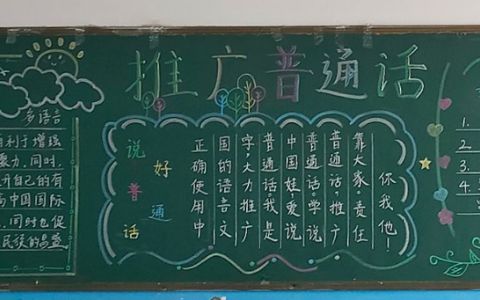 推广普通话
多语言
有利于增强
力,同时,
升自己的有
中国国际
,同时也促
民族的昌盛
说好普通话
正确使用中
国的语言文
字,大力推广
普通话。我是
中国娃爱说
普通话。学说
普通话。推广
靠大家。责任
你我他!
1.
2.
3.
4.